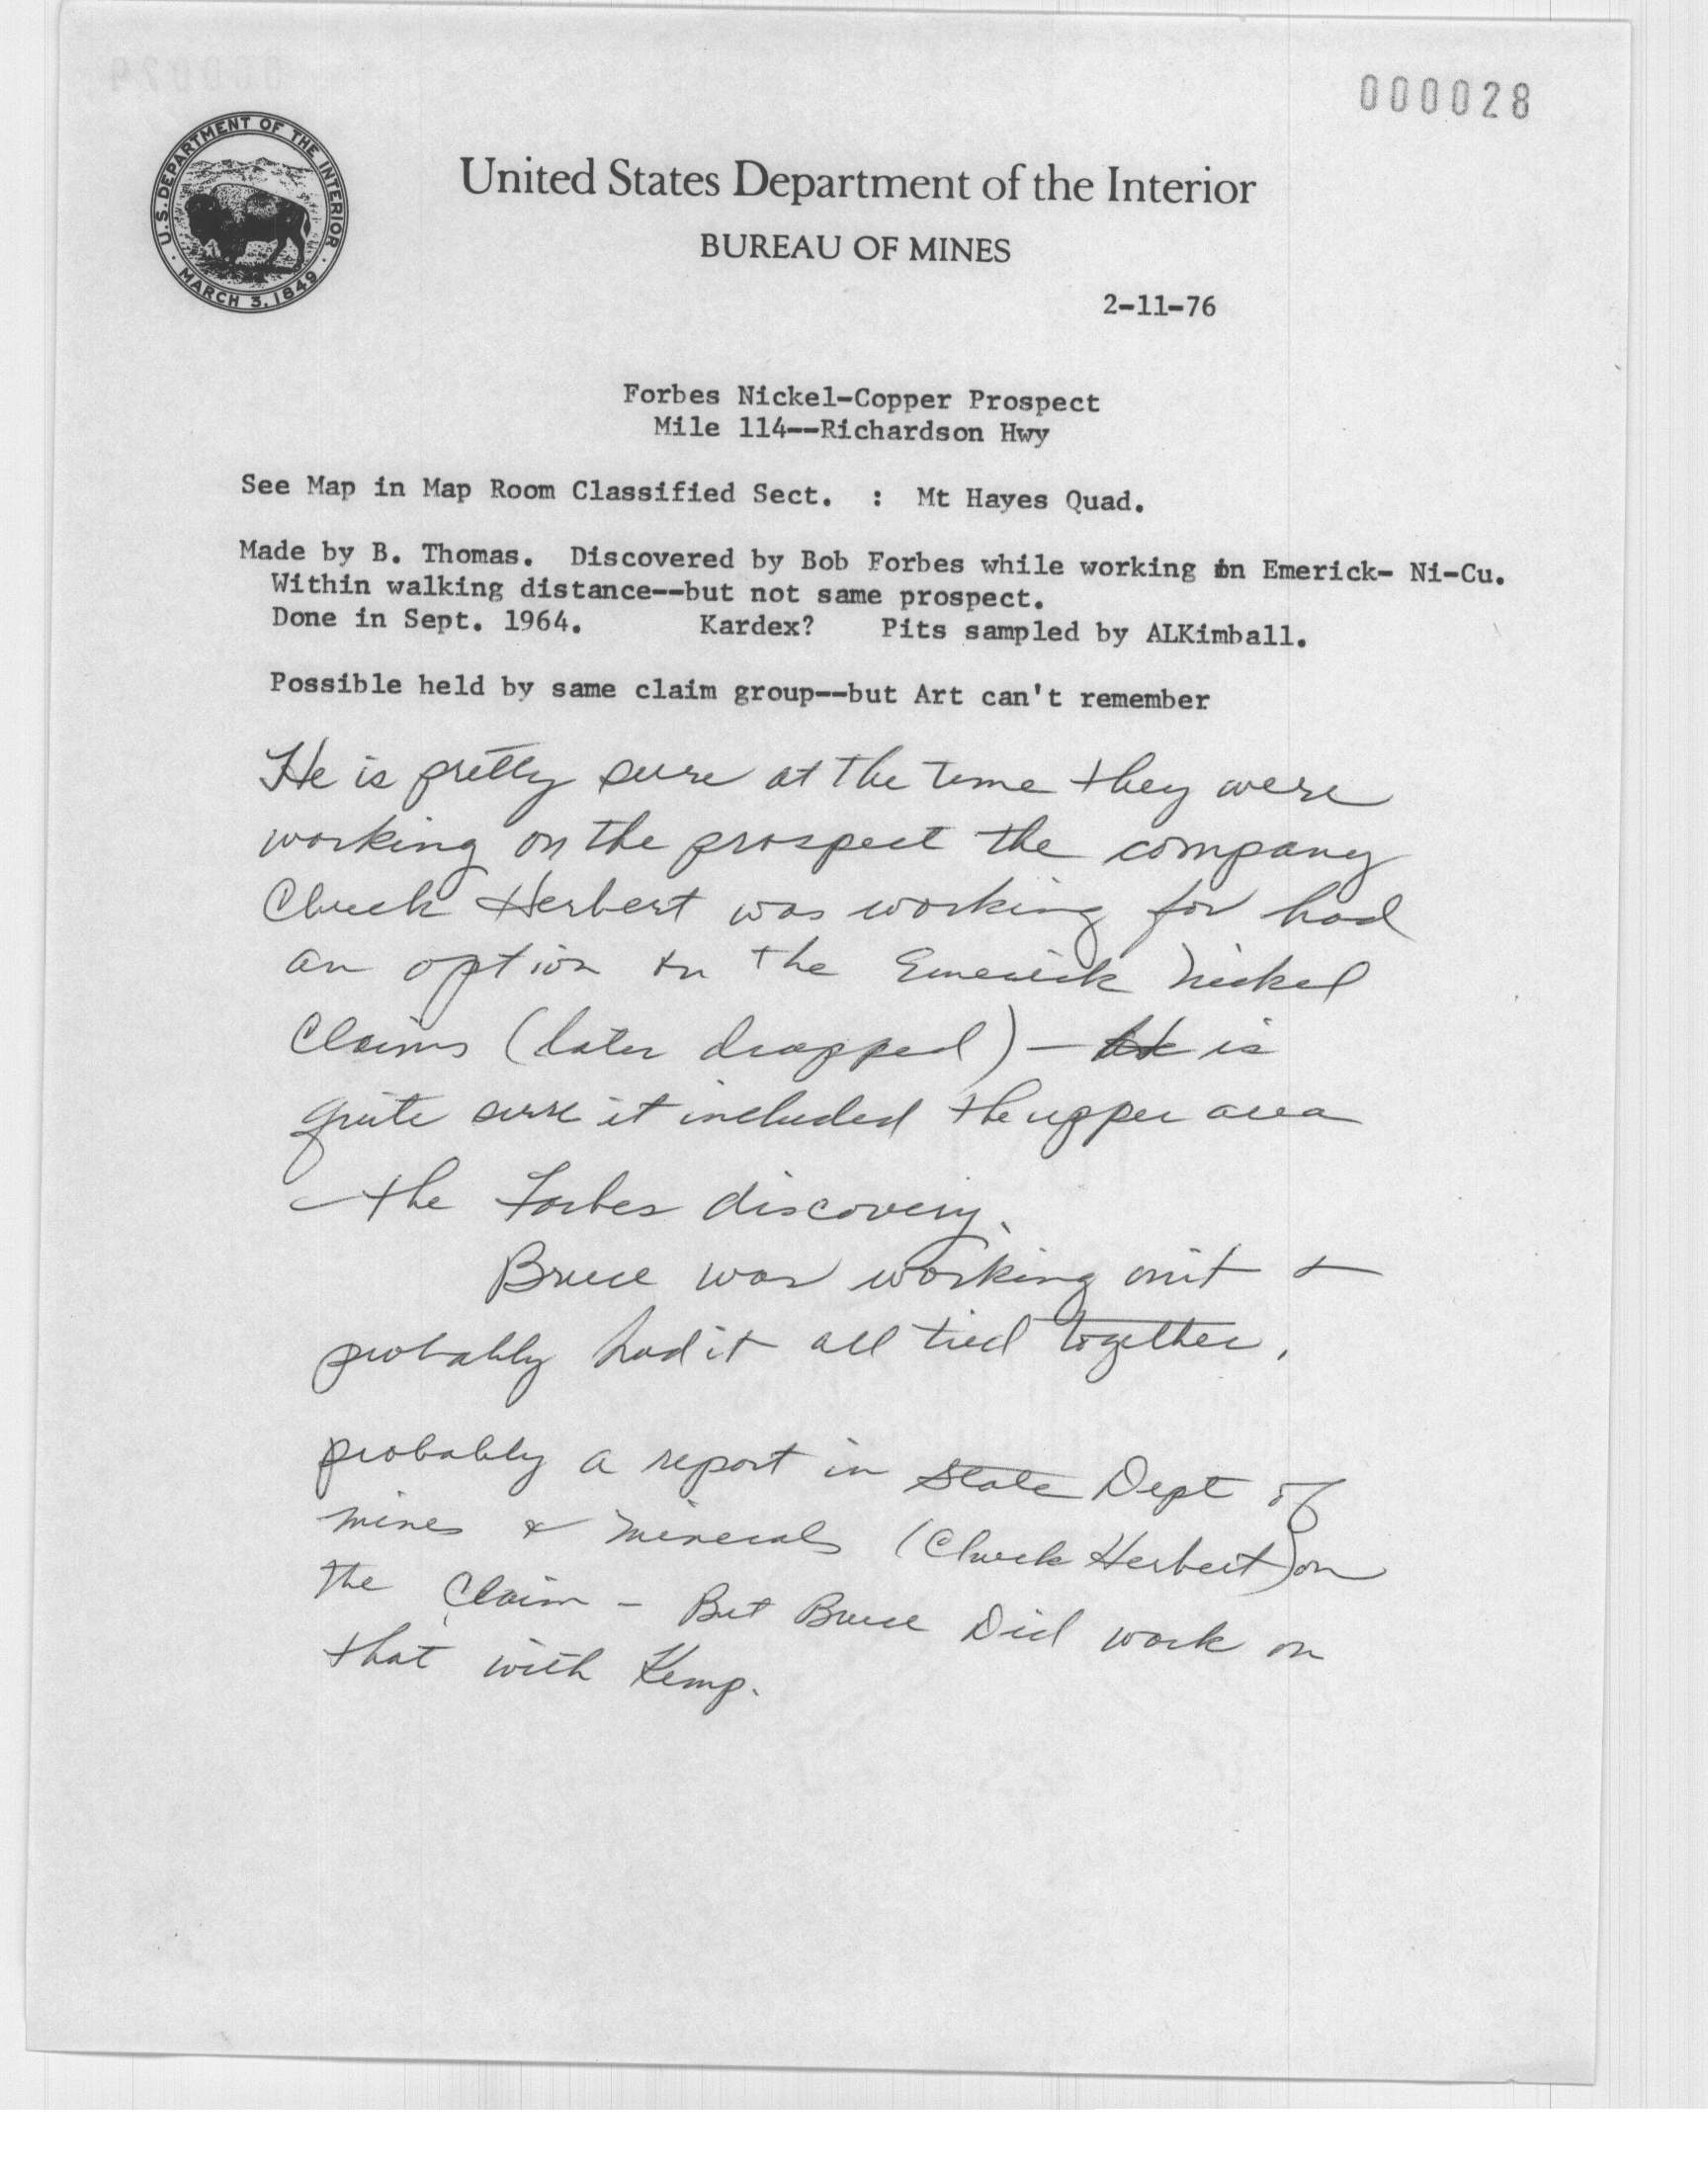 000028
U.S. DEPARTMENT OF THE INTERIOR
MARCH 3, 1849
United States Department of the Interior
BUREAU OF MINES
2-11-76
Forbes Nickel-Copper Prospect
Mile 114--Richardson Hwy
See Map in Map Room Classified Sect. : Mt Hayes Quad.
Made by B. Thomas. Discovered by Bob Forbes while working on Emerick- Ni-Cu.
Within walking distance--but not same prospect.
Done in Sept. 1964. Kardex? Pits sampled by ALKimball.
Possible held by same claim group--but Art can't remember
He is pretty sure at the time they were
working on the prospect the company
Chuck Herbert was working for had
an option on the Emerick Nickel
Claims (later dropped) - He is
quite sure it included the upper area
- the Forbes discovery.
Bruce was working on it &
probably had it all tied together.
probably a report in State Dept of
mines & minerals (Chuck Herbert) on
the Claim - But Bruce Did work on
that with Kemp.